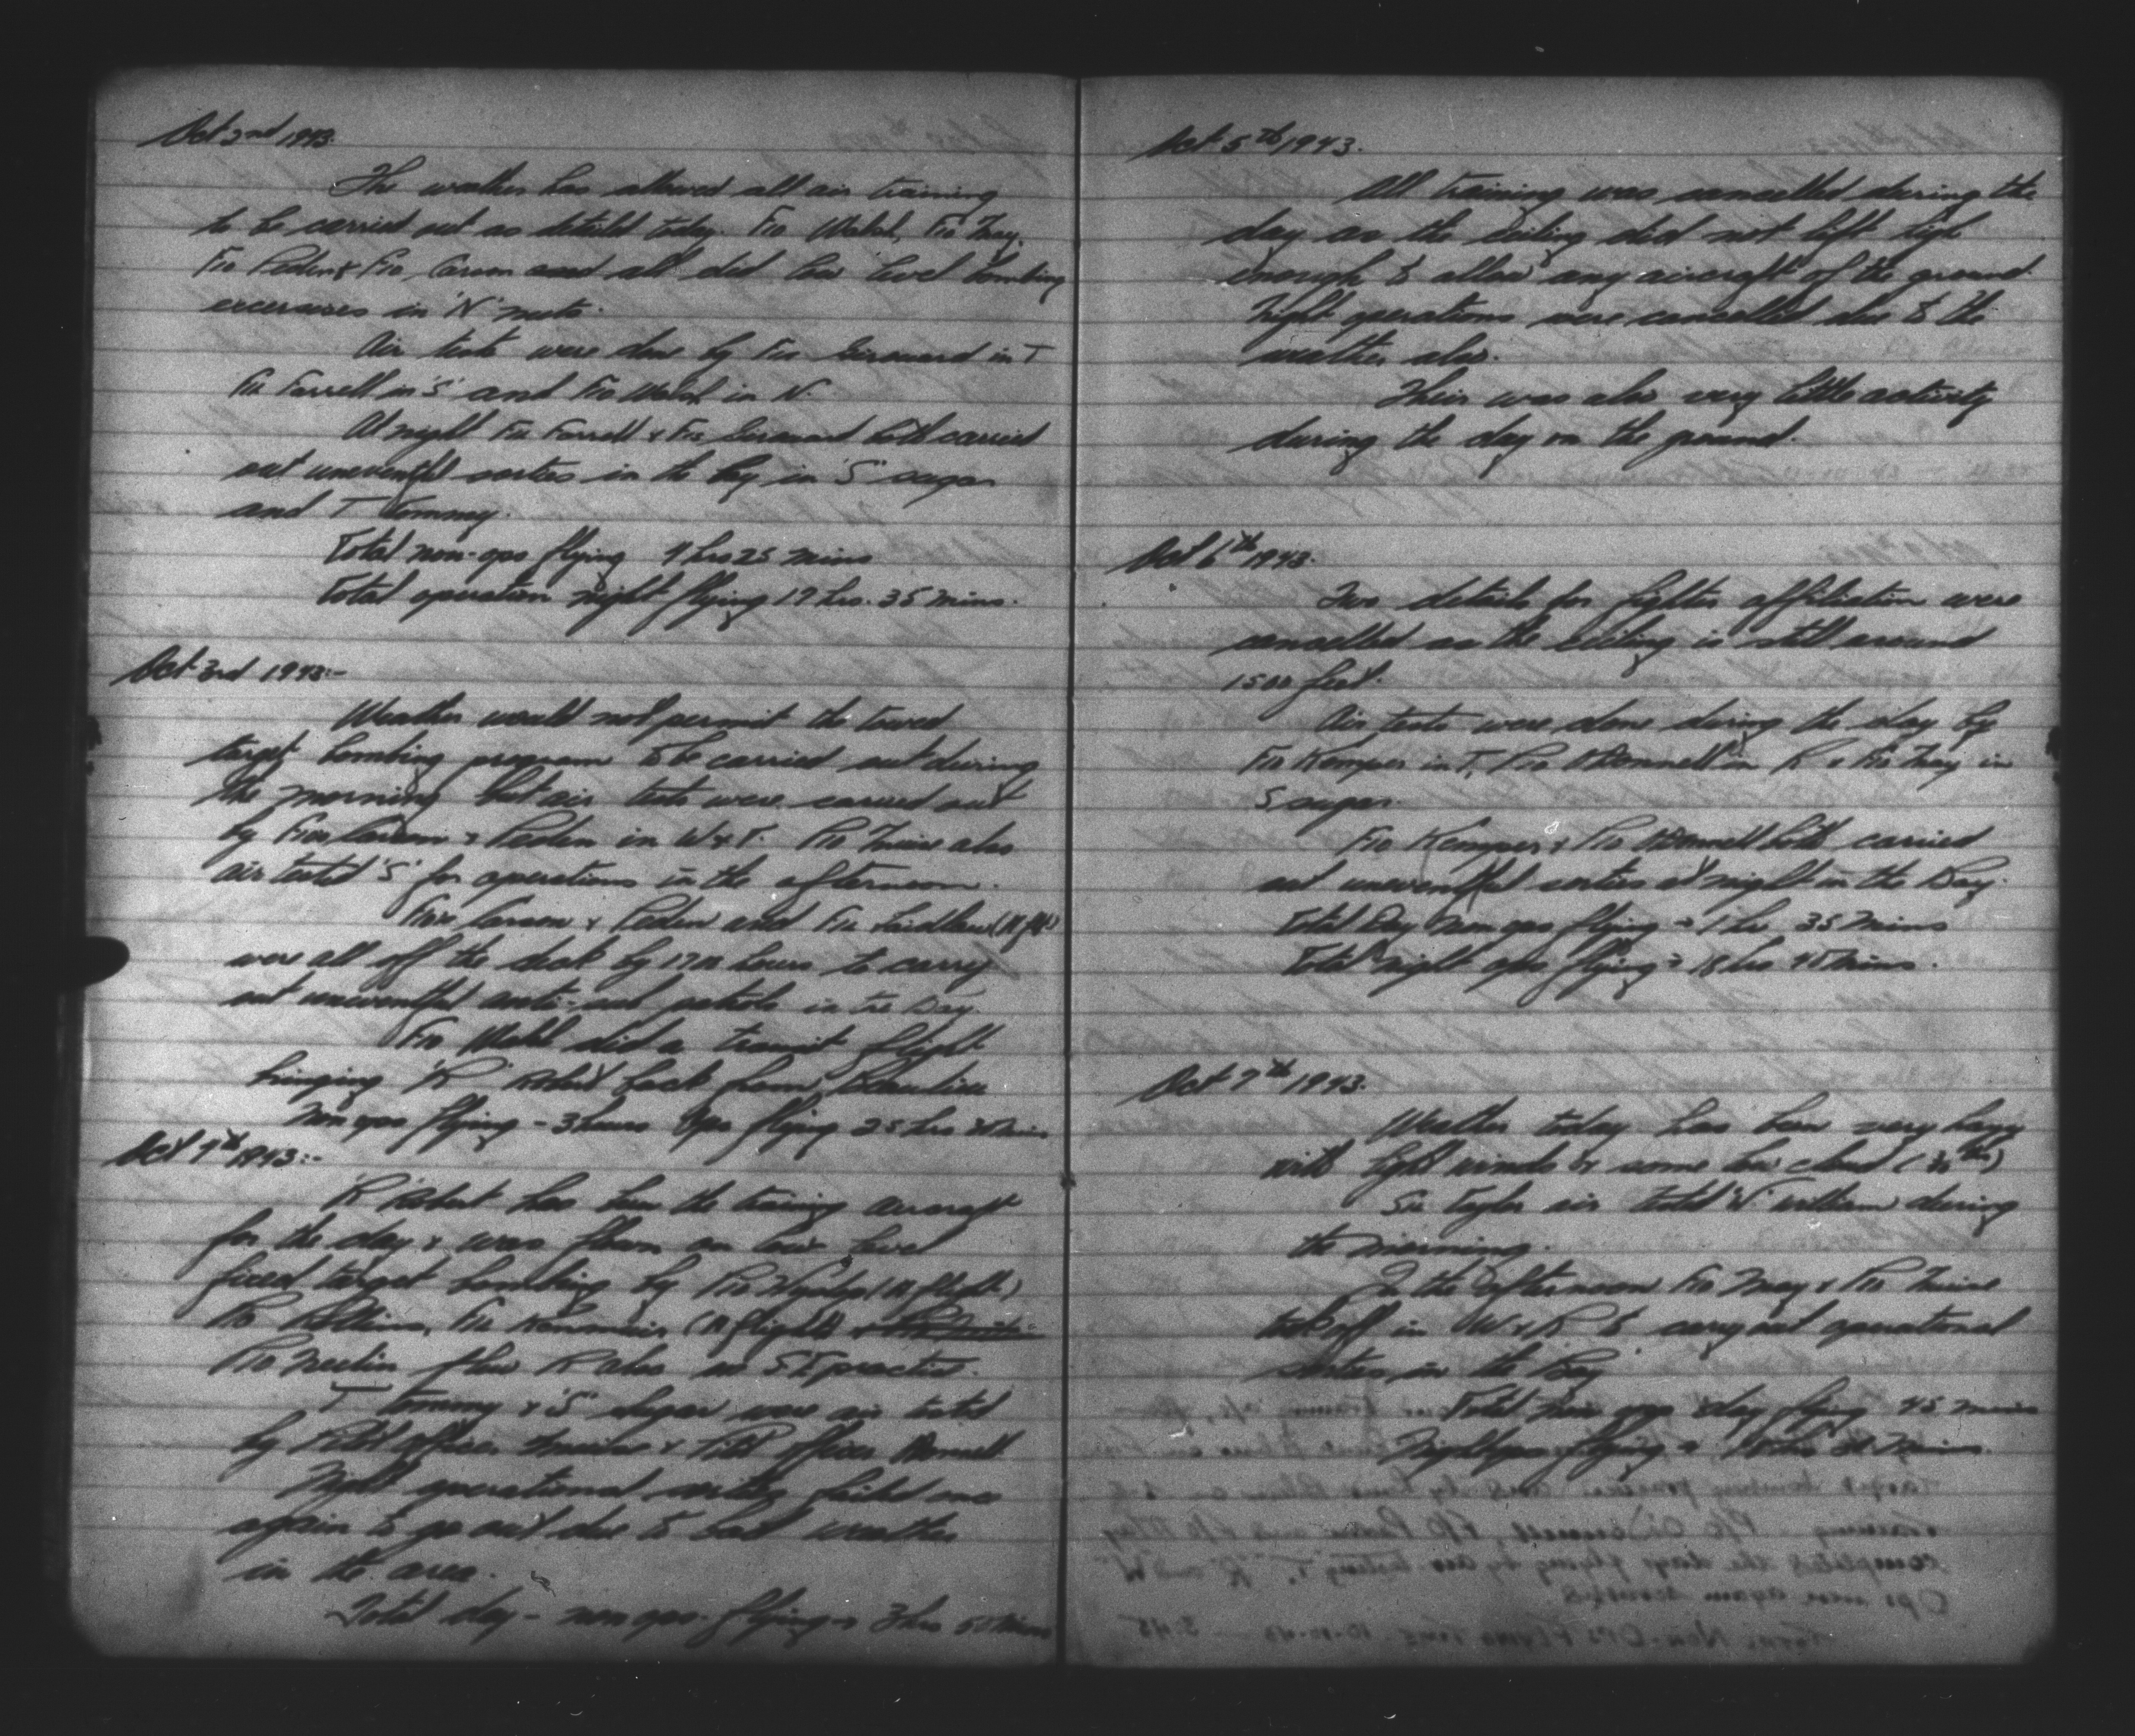 Oct 2nd 1943.
The weather has allowed all air training
to be carried out as detailed today. F/O Walsh, F/O May,
F/O Peden & F/O Carson and all did low level bombing
excersises in 'N' nuts.
Air tests were done by F/O Girouard in T
F/L Farrell in 'S' and F/O Walsh in N.
At night F/L Farrell & F/O Girouard both carried
out uneventful sorties in the bay in 'S' sugar
and T Tommy.
Total non-ops flying 4 hrs 25 mins
Total operation night flying 17 hrs. 35 mins.
Oct 3rd 1943:-
Weather would not permit the towed
target bombing program to be carried out during
the morning but air tests were carried out
by F/Os Carson & Peden in W & T. P/O also
air tested 'S' for operations in the afternoon.
F/Os Carson & Peden and F/L Laidlaw (A flt)
were all off the deck by hours to carry
out uneventful anti-sub patrols in the Bay
F/O Walsh did a transit flight
bringing 'R' Robert back from
Non ops flying - 3 hours Ops flying 25 hrs mins
Oct 4th 1943:-
'R' Robert has been the training aircraft
for the day & was flown on low level
fixed target bombing by P/O (A flight)
P/O F/L (A flight) &
P/O flew R also on practice.
T Tommy & 'S' sugar were air tested
by Pilot officer & Pilot officer
Night operational sorties failed once
again to go out due to bad weather
in the area.
Total day - non ops - flying - 3 hrs 50 mins
Oct 5th 1943.
All training was cancelled during the
day as the ceiling did not lift high
enough to allow any aircraft of the ground.
Night operations were cancelled due to the
weather also.
Their was also very little activity
during the day on the ground.
Oct 6th 1943.
Two details for fighter affiliation were
cancelled as the ceiling is still around
1500 feet.
Air tests were done during the day by
F/O Kemper in T, P/O O'Donnell in R & F/O May in
S sugar.
F/O Kemper & P/O O'Donnell both carried
out uneventful sorties at night in the Bay.
Total Day Non ops flying - 1 hr 35 mins
Total night ops flying - 18 hrs mins.
Oct 7th 1943.
Weather today has been very hazy
with light winds & some low cloud
F/L Taylor air tested 'W' william during
the morning.
In the afternoon F/O May & P/O
took off in W & R to carry out operational
sorties in the Bay
Total non ops day flying 45 mins
Night ops flying - hrs mins.